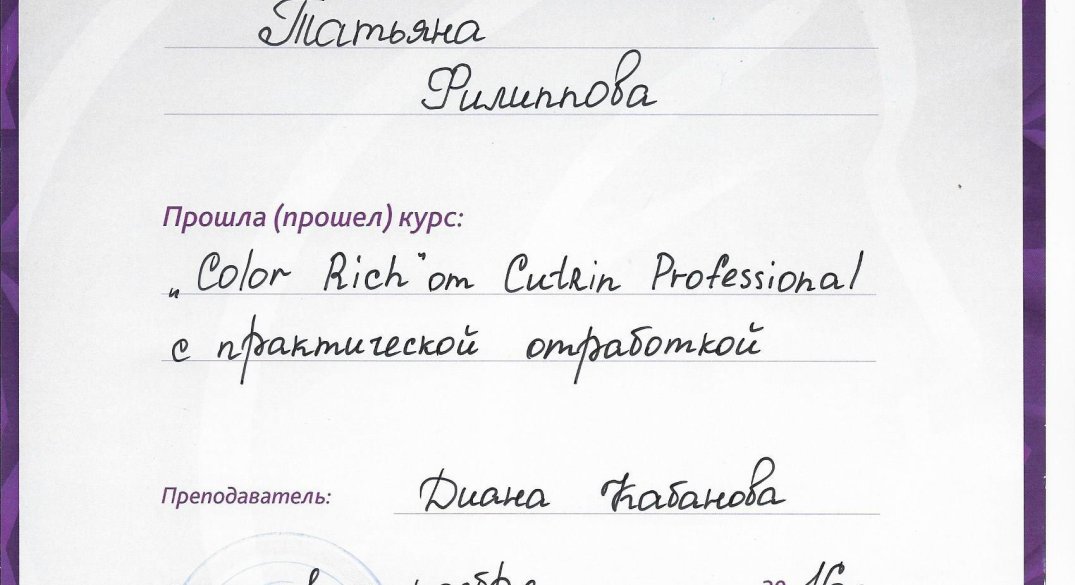 Татьяна
Филиппова
Прошла (прошел) курс:
"Color Rich" от Cutrin Professional
с практической отработкой
Преподаватель: Диана Кабанова